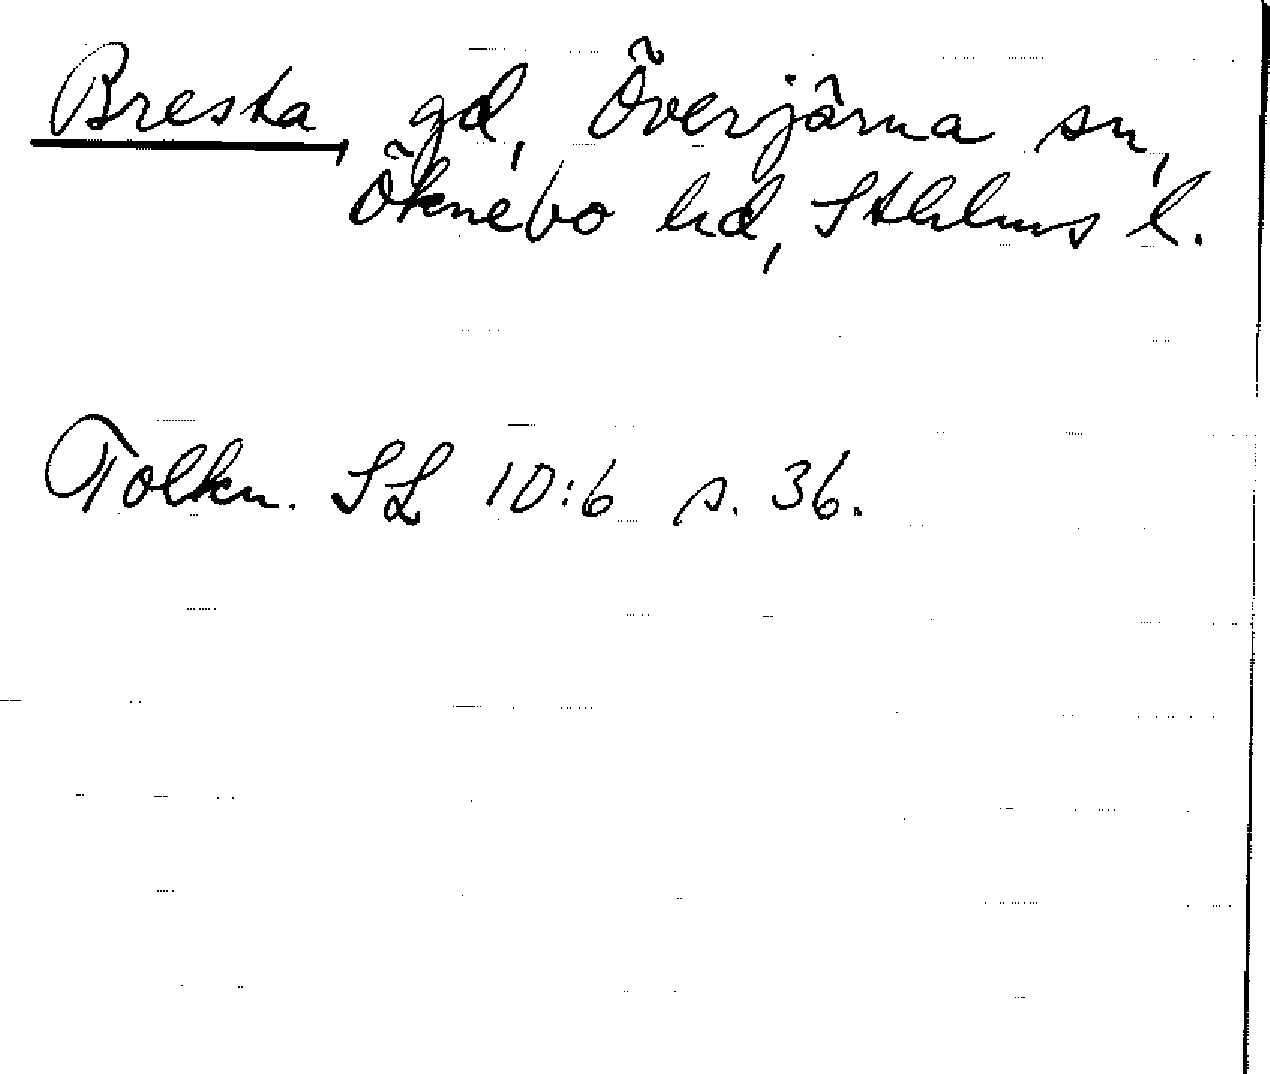 Bresta, gd, Överjärna sn,
Öknebo hd, Sthlms l.
Tolkn. SL 10:6 s. 36.